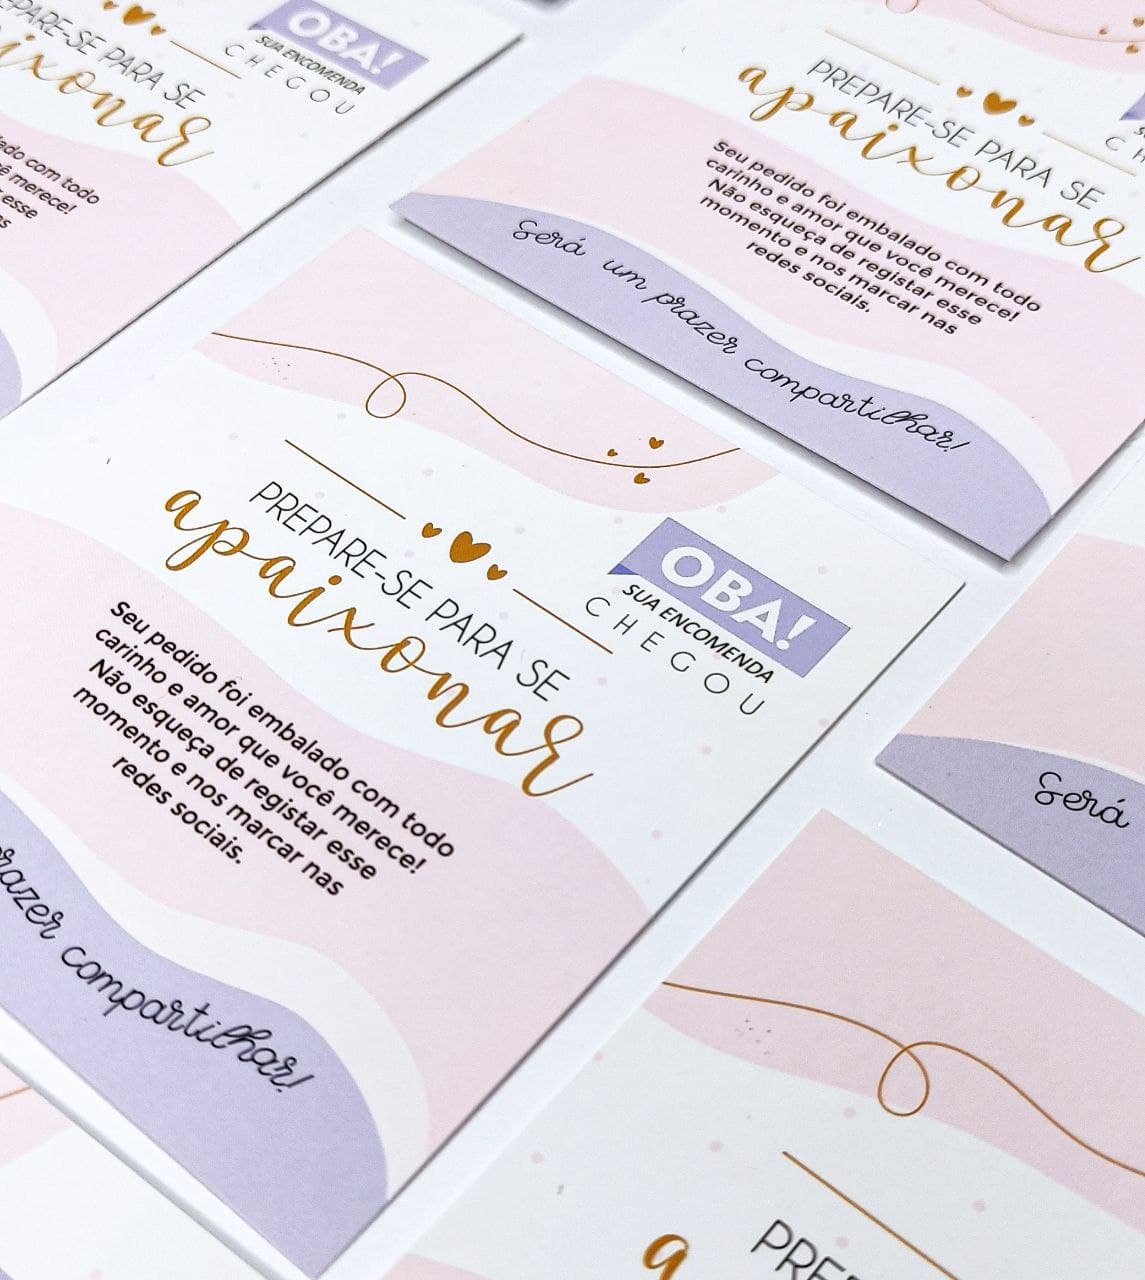 PARE-SE PARA SE
aixonar
OBA!
SUA ENCOMENDA
CHEGOU
com todo
merece!
esse
PREPARE-SE PARA SE
apaixonar
Seu pedido foi embalado com todo
carinho e amor que você merece!
Não esqueça de registar esse
momento e nos marcar nas
redes sociais.
Será um prazer compartilhar!
OBA!
SUA ENCOMENDA
CHEGOU
PREPARE-SE PARA SE
apaixonar
Seu pedido foi embalado com todo
carinho e amor que você merece!
Não esqueça de registar esse
momento e nos marcar nas
redes sociais.
prazer compartilhar!
Será
PRE
a